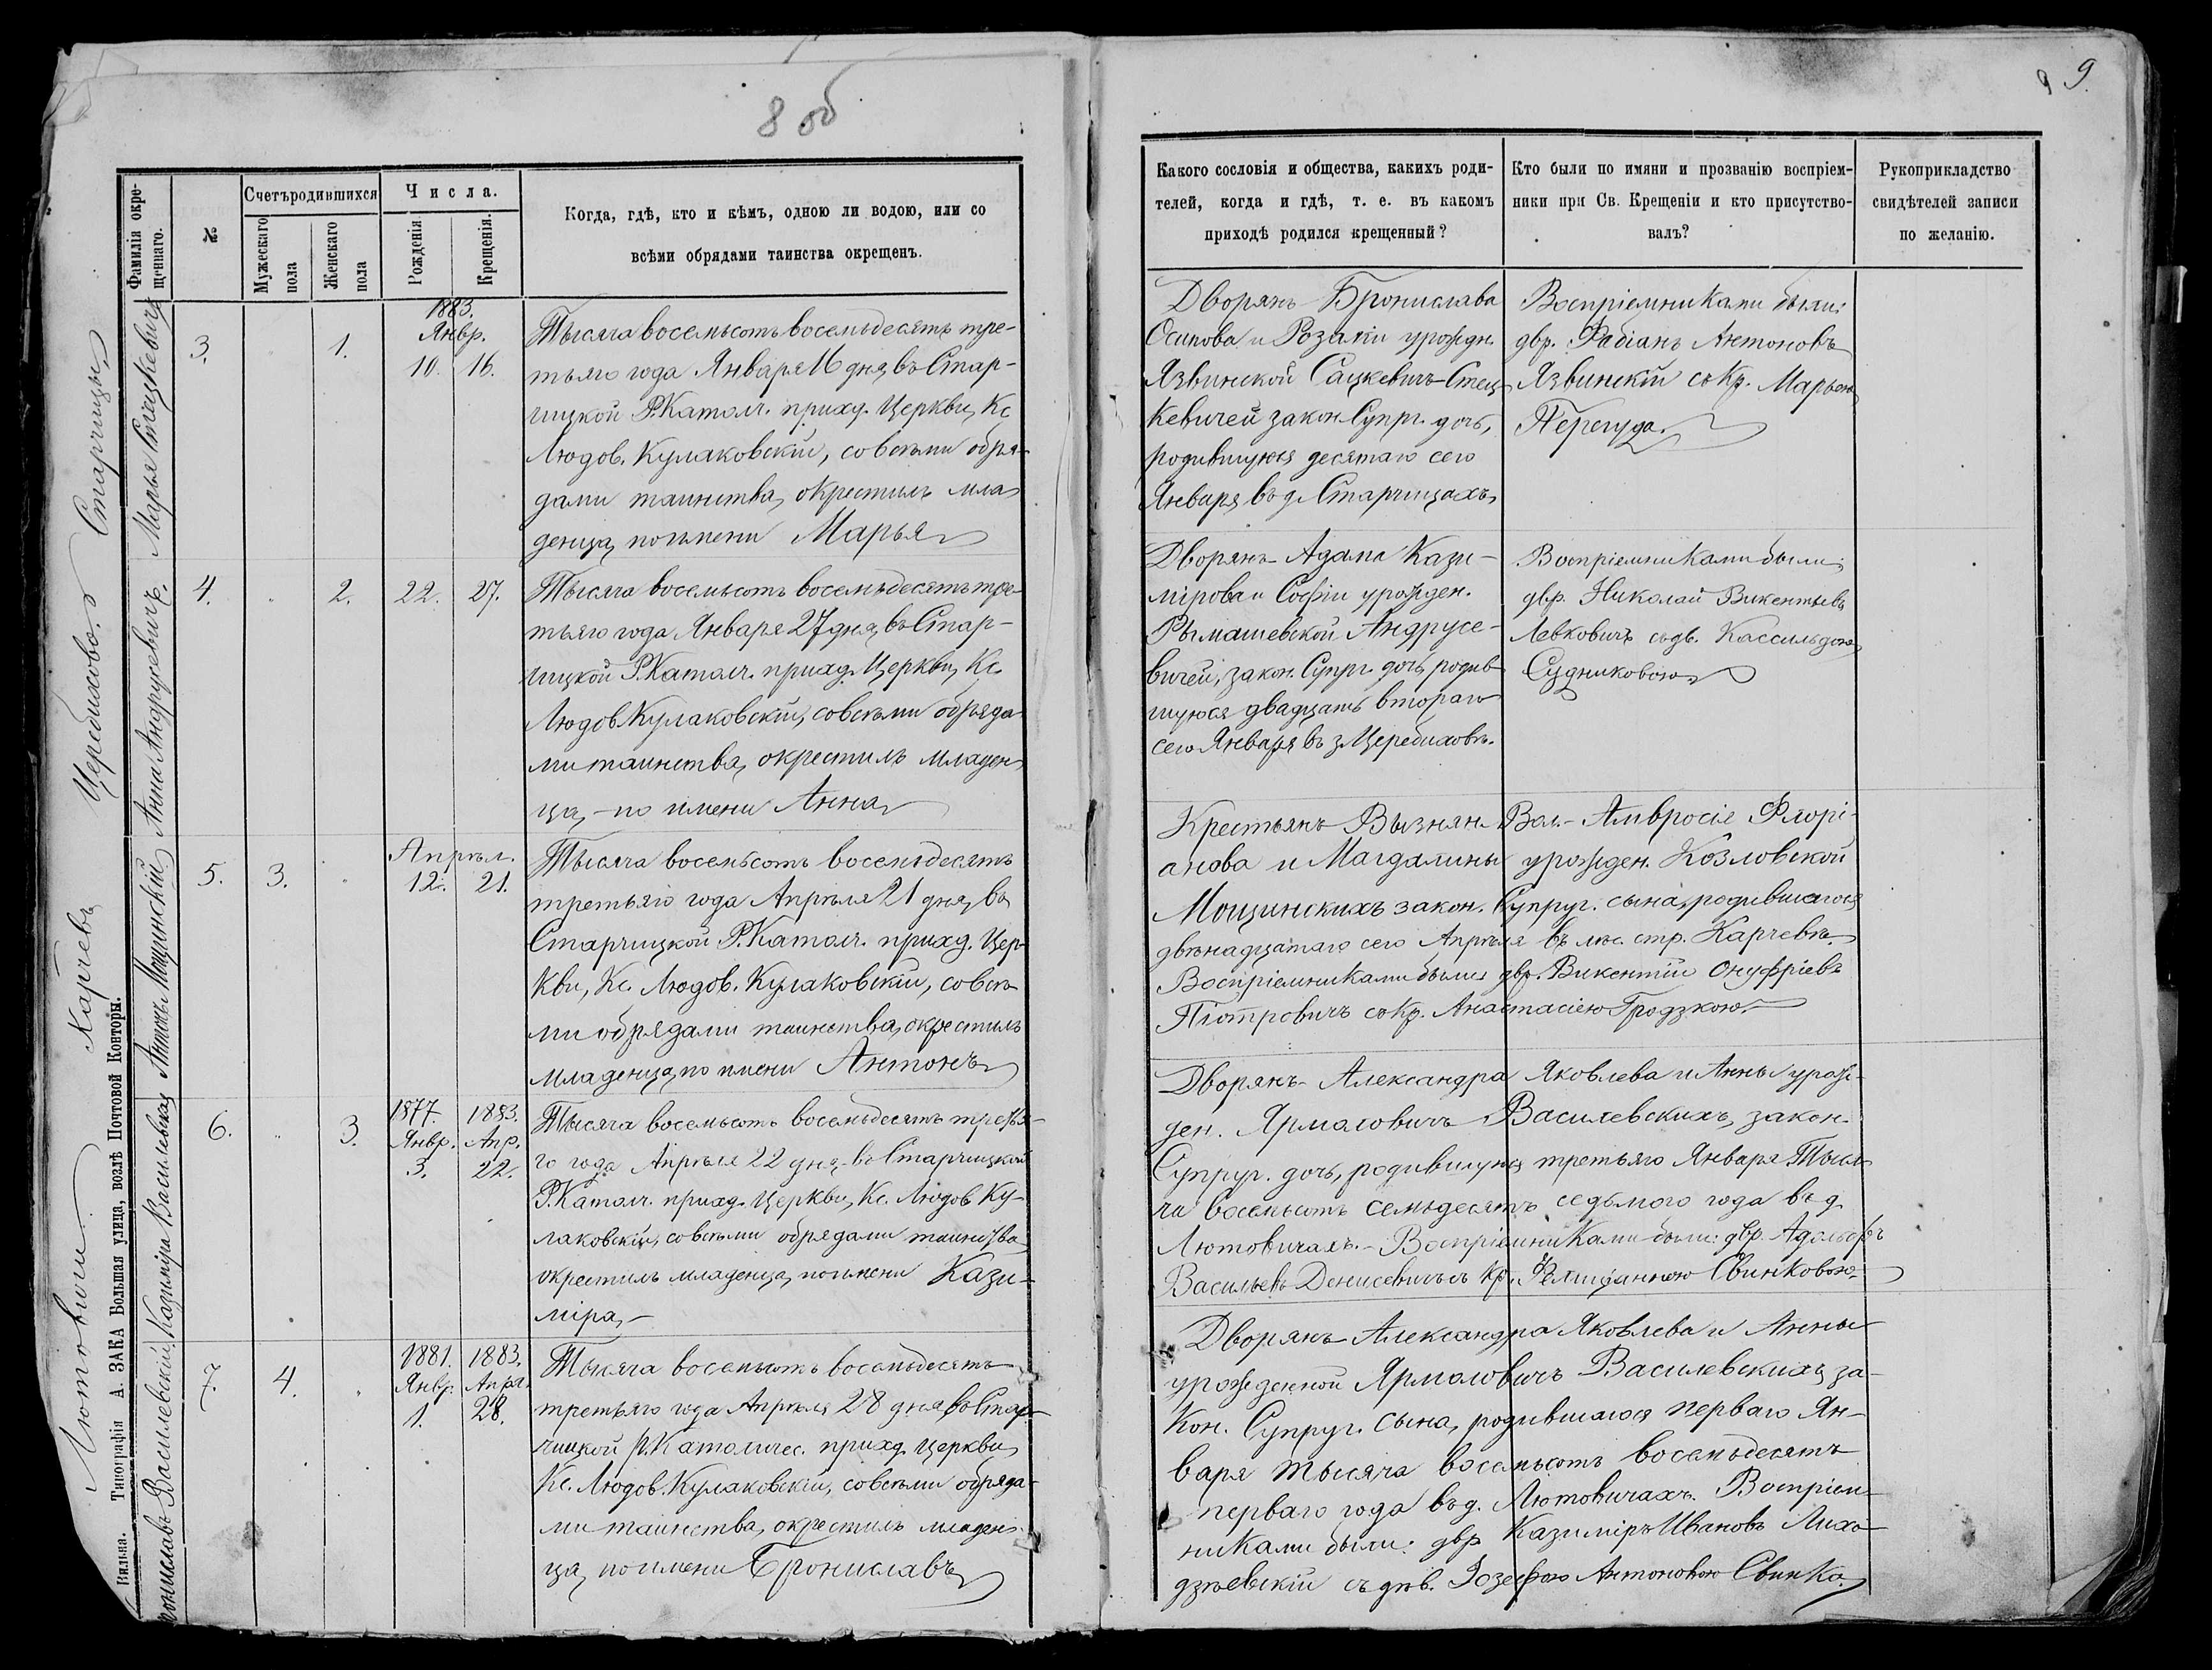 8 об
9 9.
Фамилія окре-
щеннаго.
№
Счетъ родившихся
Мужескаго
пола
Женскаго
пола
Числа.
Рожденія.
Крещенія.
Когда, гдѣ, кто и кѣмъ, одною ли водою, или со
всѣми обрядами таинства окрещенъ.
Какого сословія и общества, какихъ роди-
телей, когда и гдѣ, т. е. въ какомъ
приходѣ родился крещенный?
Кто были по имяни и прозванію воспріем-
ники при Св. Крещеніи и кто присутство-
валъ?
Рукоприкладство
свидѣтелей записи
по желанію.
Старчицы
Марья Стецкевичъ
3.
1.
1883.
Янвр.
10. 16.
Тысяча восемьсотъ восемьдесятъ тре-
тьяго года Января 16 дня, въ Стар-
чицкой Р.Катол. приход. Церкви, Кс.
Людов. Кулаковскій, со всѣми обря-
дами таинства, окрестилъ мла-
денца, по имени Марья
Дворянъ Бронислава
Осипова и Розаліи урожден.
Язвинской Сацкевичъ-Стец-
кевичей закон. Супр. дочь,
родившуюся десятаго сего
Января въ д. Старчицахъ.
Воспріемниками были:
двр. Фабіанъ Антоновъ
Язвинскій съ Кр. Марьею
Перегуда.
Церебихово.
Анна Андрусевичъ
4.
2.
22. 27.
Тысяча восемьсотъ восемьдесятъ тре-
тьяго года Января 27 дня, въ Стар-
чицкой Р.Катол. приход. Церкви, Кс.
Людов. Кулаковскій, со всѣми обряда-
ми таинства, окрестилъ младен-
ца, по имени Анна
Дворянъ Адама Кази-
мірова и Софіи урожден.
Рымашевской Андрусе-
вичей, закон. Супр. дочь, родив-
шуюся двадцать втораго
сего Января въ з. Церебиховѣ.
Воспріемниками были:
двр. Николай Викентьевъ
Левковичъ съ дв. Кассильдою
Судниковою
Карчева
Антонъ Мощинскій
5.
3.
Апрѣл.
12. 21.
Тысяча восемьсотъ восемьдесятъ
третьяго года Апрѣля 21 дня, въ
Старчицкой Р.Катол. приход. Цер-
кви, Кс. Людов. Кулаковскій, со всѣ-
ми обрядами таинства, окрестилъ
младенца, по имени Антонъ
Крестьянъ Вызнян. Вол. Амвросія Флорі-
анова и Магдалины урожден. Козловской
Мощинскихъ закон. Супруг. сына, родившагося
двѣнадцатаго сего Апрѣля въ лѣс. стр. Карчевѣ.
Воспріемниками были двр. Викентій Онуфріевъ
Піотровичъ съ Кр. Анастасіею Гродзкою.
Лютовичи
Казиміра Василевская
6.
3.
1877. 1883.
Янвр. Апр.
3. 22.
Тысяча восемьсотъ восемьдесятъ третья-
го года Апрѣля 22 дня, въ Старчицкой
Р.Катол. приход. Церкви, Кс. Людов. Ку-
лаковскій, со всѣми обрядами таинства
окрестилъ младенца, по имени Кази-
міра,
Дворянъ Александра Яковлева и Анны урож-
ден. Ярмоловичъ Василевскихъ, закон.
Супруг. дочь, родившуюся третьяго Января Тыся-
ча восемьсотъ семьдесятъ седьмого года въ д.
Лютовичахъ. Воспріемниками были: двр. Адольфъ
Васильевъ Денисевичъ съ Кр. Фелиціанною Свинковою
Брониславъ Василевскій
7.
4.
1881. 1883.
Янвр. Апрл.
1. 28.
Тысяча восемьсотъ восемьдесятъ
третьяго года Апрѣля 28 дня, въ Стар-
чицкой Р.Католичес. приход. Церкви,
Кс. Людов. Кулаковскій, со всѣми обряда-
ми таинства, окрестилъ младен-
ца, по имени Брониславъ
Дворянъ Александра Яковлева и Анны
урожденной Ярмоловичъ Василевскихъ за-
кон. Супруг. сына, родившагося перваго Ян-
варя тысяча восемьсотъ восемьдесятъ
перваго года въ д. Лютовичахъ. Воспріем-
никами были: двр. Казиміръ Ивановъ Лихо-
дзіевскій съ дѣв. Іозефою Антоновою Свинко.
Вильна. Типографія А. ЗАКА Большая улица, возлѣ Почтовой Конторы.